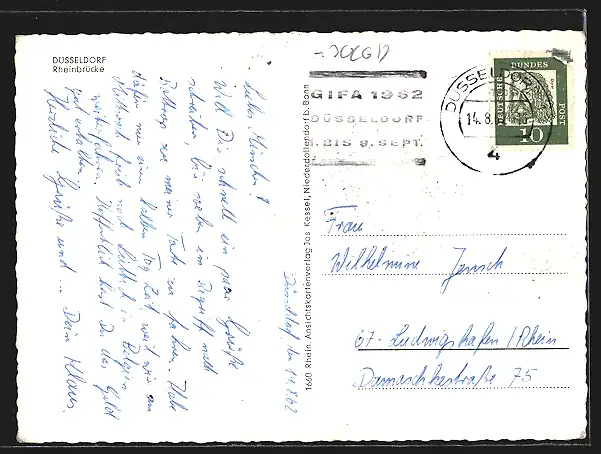 DÜSSELDORF
Rheinbrücke
Düsseldorf, den 14.8.62
will Dir schnell ein paar Grüße
schreiben, bin eben im Begriff nach
zu meiner Tante zu fahren. Habe
einen halben Tag Zeit weil wir am
Mittwoch früh nach Lüttich in Belgien
weiterfahren. Hoffentlich hast Du das Geld
gut erhalten.
Herzliche Grüße und ... Dein Klaus.
1600 Rhein. Ansichtskartenverlag Jos. Kessel, Niederdollendorf b. Bonn
GIFA 1962
DÜSSELDORF
1. BIS 9. SEPT.
DÜSSELDORF
14.8.
4
DEUTSCHE BUNDESPOST
10
Frau
Wilhelmine Jensch
67-Ludwigshafen/Rhein
Damaschkestraße 75